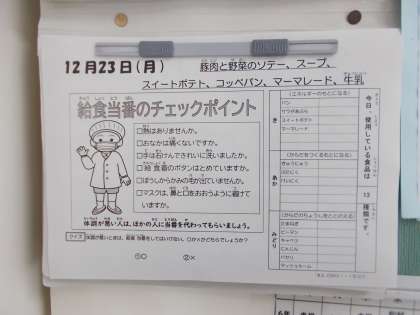 12月23日(月)
豚肉と野菜のソテー、スープ、
スイートポテト、コッペパン、マーマレード、牛乳
給食当番のチェックポイント
□熱はありませんか。
□おなかは痛くないですか。
□手は石けんできれいに洗いましたか。
□給食着のボタンはとめていますか。
□ぼうしからかみの毛が出ていませんか。
□マスクは、鼻と口をおおうように着けて
いますか。
体調が悪い人は、ほかの人に当番を代わってもらいましょう。
クイズ
①○ ②×
今日、使用している食品は、13種類です。
き
(エネルギーのもとになる)
パン
サラダあぶら
スイートポテト
マーマレード
あか
(からだをつくるもとになる)
ぎゅうにゅう
ぶたにく
(からだのちょうしをととのえる)
みどり
たまねぎ
ピーマン
キャベツ
にんじん
パセリ
マッシュルーム